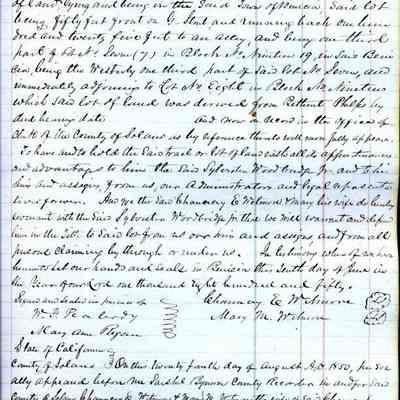 of Land lying and being in the said Town of Benicia Said lot
being fifty feet front on G. Street and running back One hun
dred and twenty five feet to an alley, and being one third
part of Lot No. Seven (7) in Block No. Nineteen 19, in Said Beni
cia, being the Westerly one third part of Said lot No. Seven, and
immediately adjoining to Lot No. Eight in Block No. Nineteen
which Said lot of land was derived from Bethuel Phelps by
deed bearing date and now on record in the office of
Clerk of the County of Solano as by reference thereto will more fully appear.
To have and to hold the Said tract or lot of land with all its appurtenances
and advantages to him the Said Sylvester Woodbridge Jr. and to his
heirs and assigns, from us, our Administrators and legal representa
tives forever. And we the Said Chauncey E Wetmore & Mary his wife do hereby
covenant with the Said Sylvester Woodbridge Jr. that we will warrant and defend
him in the title to Said lot from us our heirs and assigns and from all
persons claiming by through or under us. In testimony whereof we have
hereunto Set our hands and seals in Benicia this tenth day of June in
the Year of our Lord one thousand Eight hundred and fifty.
Signed and Sealed in presence of Chauncey E Wetmore
W. F. Peabody Mary M. Wetmore
Mary Ann Ryan
State of California
County of Solano On this twenty fourth day of August A.D. 1850, person
ally appeared before me County Recorder in and for Said
County of Solano Chauncey E Wetmore & Mary M. Wetmore